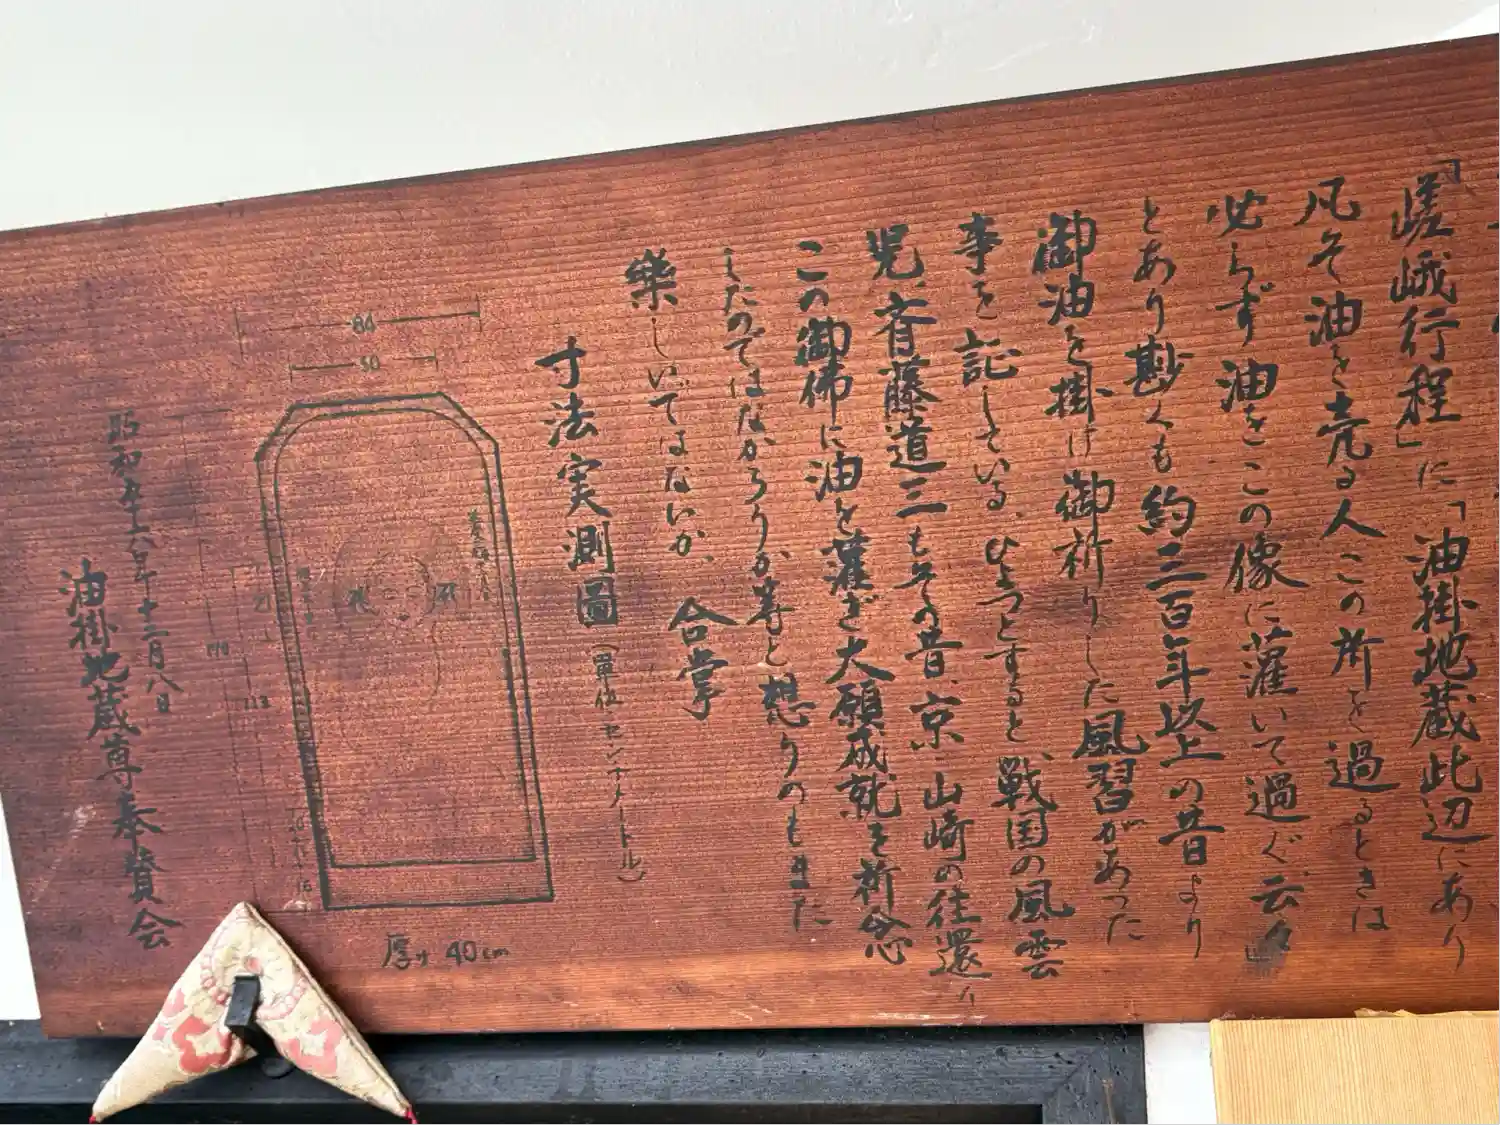 「嵯峨行程」に「油掛地蔵此辺にあり
凡そ油を売る人この所を過るときは
必らず油をこの像に灌いで過ぐ云々」
とあり尠くも約三百年以上の昔より
御油を掛け御祈りした風習があった
事を記している、ひょっとすると、戦国の風雲
児、斉藤道三もその昔、京、山崎の往還り
この御佛に油を灌ぎ大願成就を祈念
したのではなかろうか等と想うのもまた
楽しいではないか、合掌
寸法実測圖(単位 センチメートル)
80
50
170
112
厚サ 40cm
十二月八日
油掛地蔵尊奉賛会